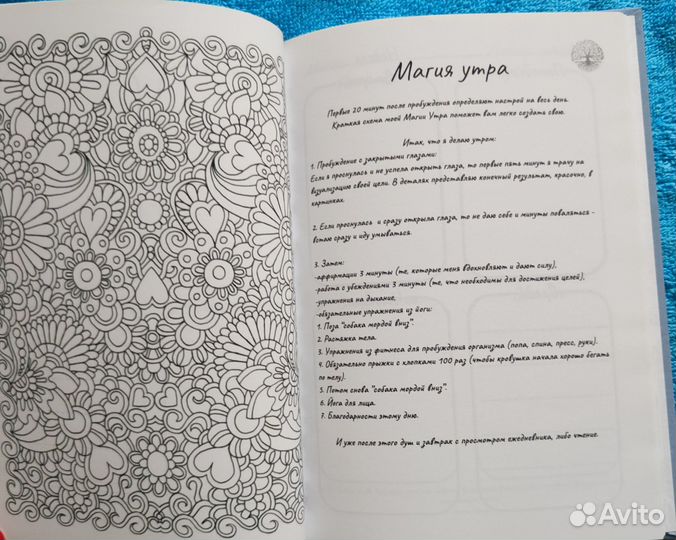 Магия утра
Первые 20 минут после пробуждения определяют настрой на весь день.
Краткая схема моей Магии Утра поможет вам легко создать свою.
Итак, что я делаю утром:
1. Пробуждение с закрытыми глазами:
Если я проснулась и не успела открыть глаза, то первые пять минут я трачу на
визуализацию своей цели. В деталях представляю конечный результат, красочно, в
картинках.
2. Если проснулась и сразу открыла глаза, то не даю себе и минуты поваляться -
встаю сразу и иду умываться.
3. Затем:
-аффирмации 3 минуты (те, которые меня вдохновляют и дают силу),
-работа с убеждениями 3 минуты (те, что необходимы для достижения целей),
-упражнения на дыхание,
-обязательные упражнения из йоги:
1. Поза "собака мордой вниз".
2. Растяжка тела.
3. Упражнения из фитнеса для пробуждения организма (попа, спина, пресс, руки).
4. Обязательно прыжки с хлопками 100 раз (чтобы кровушка начала хорошо бегать
по телу).
5. Потом снова "собака мордой вниз".
6. Йога для лица.
7. Благодарности этому дню.
И уже после этого душ и завтрак с просмотром ежедневника, либо чтение.
Avito